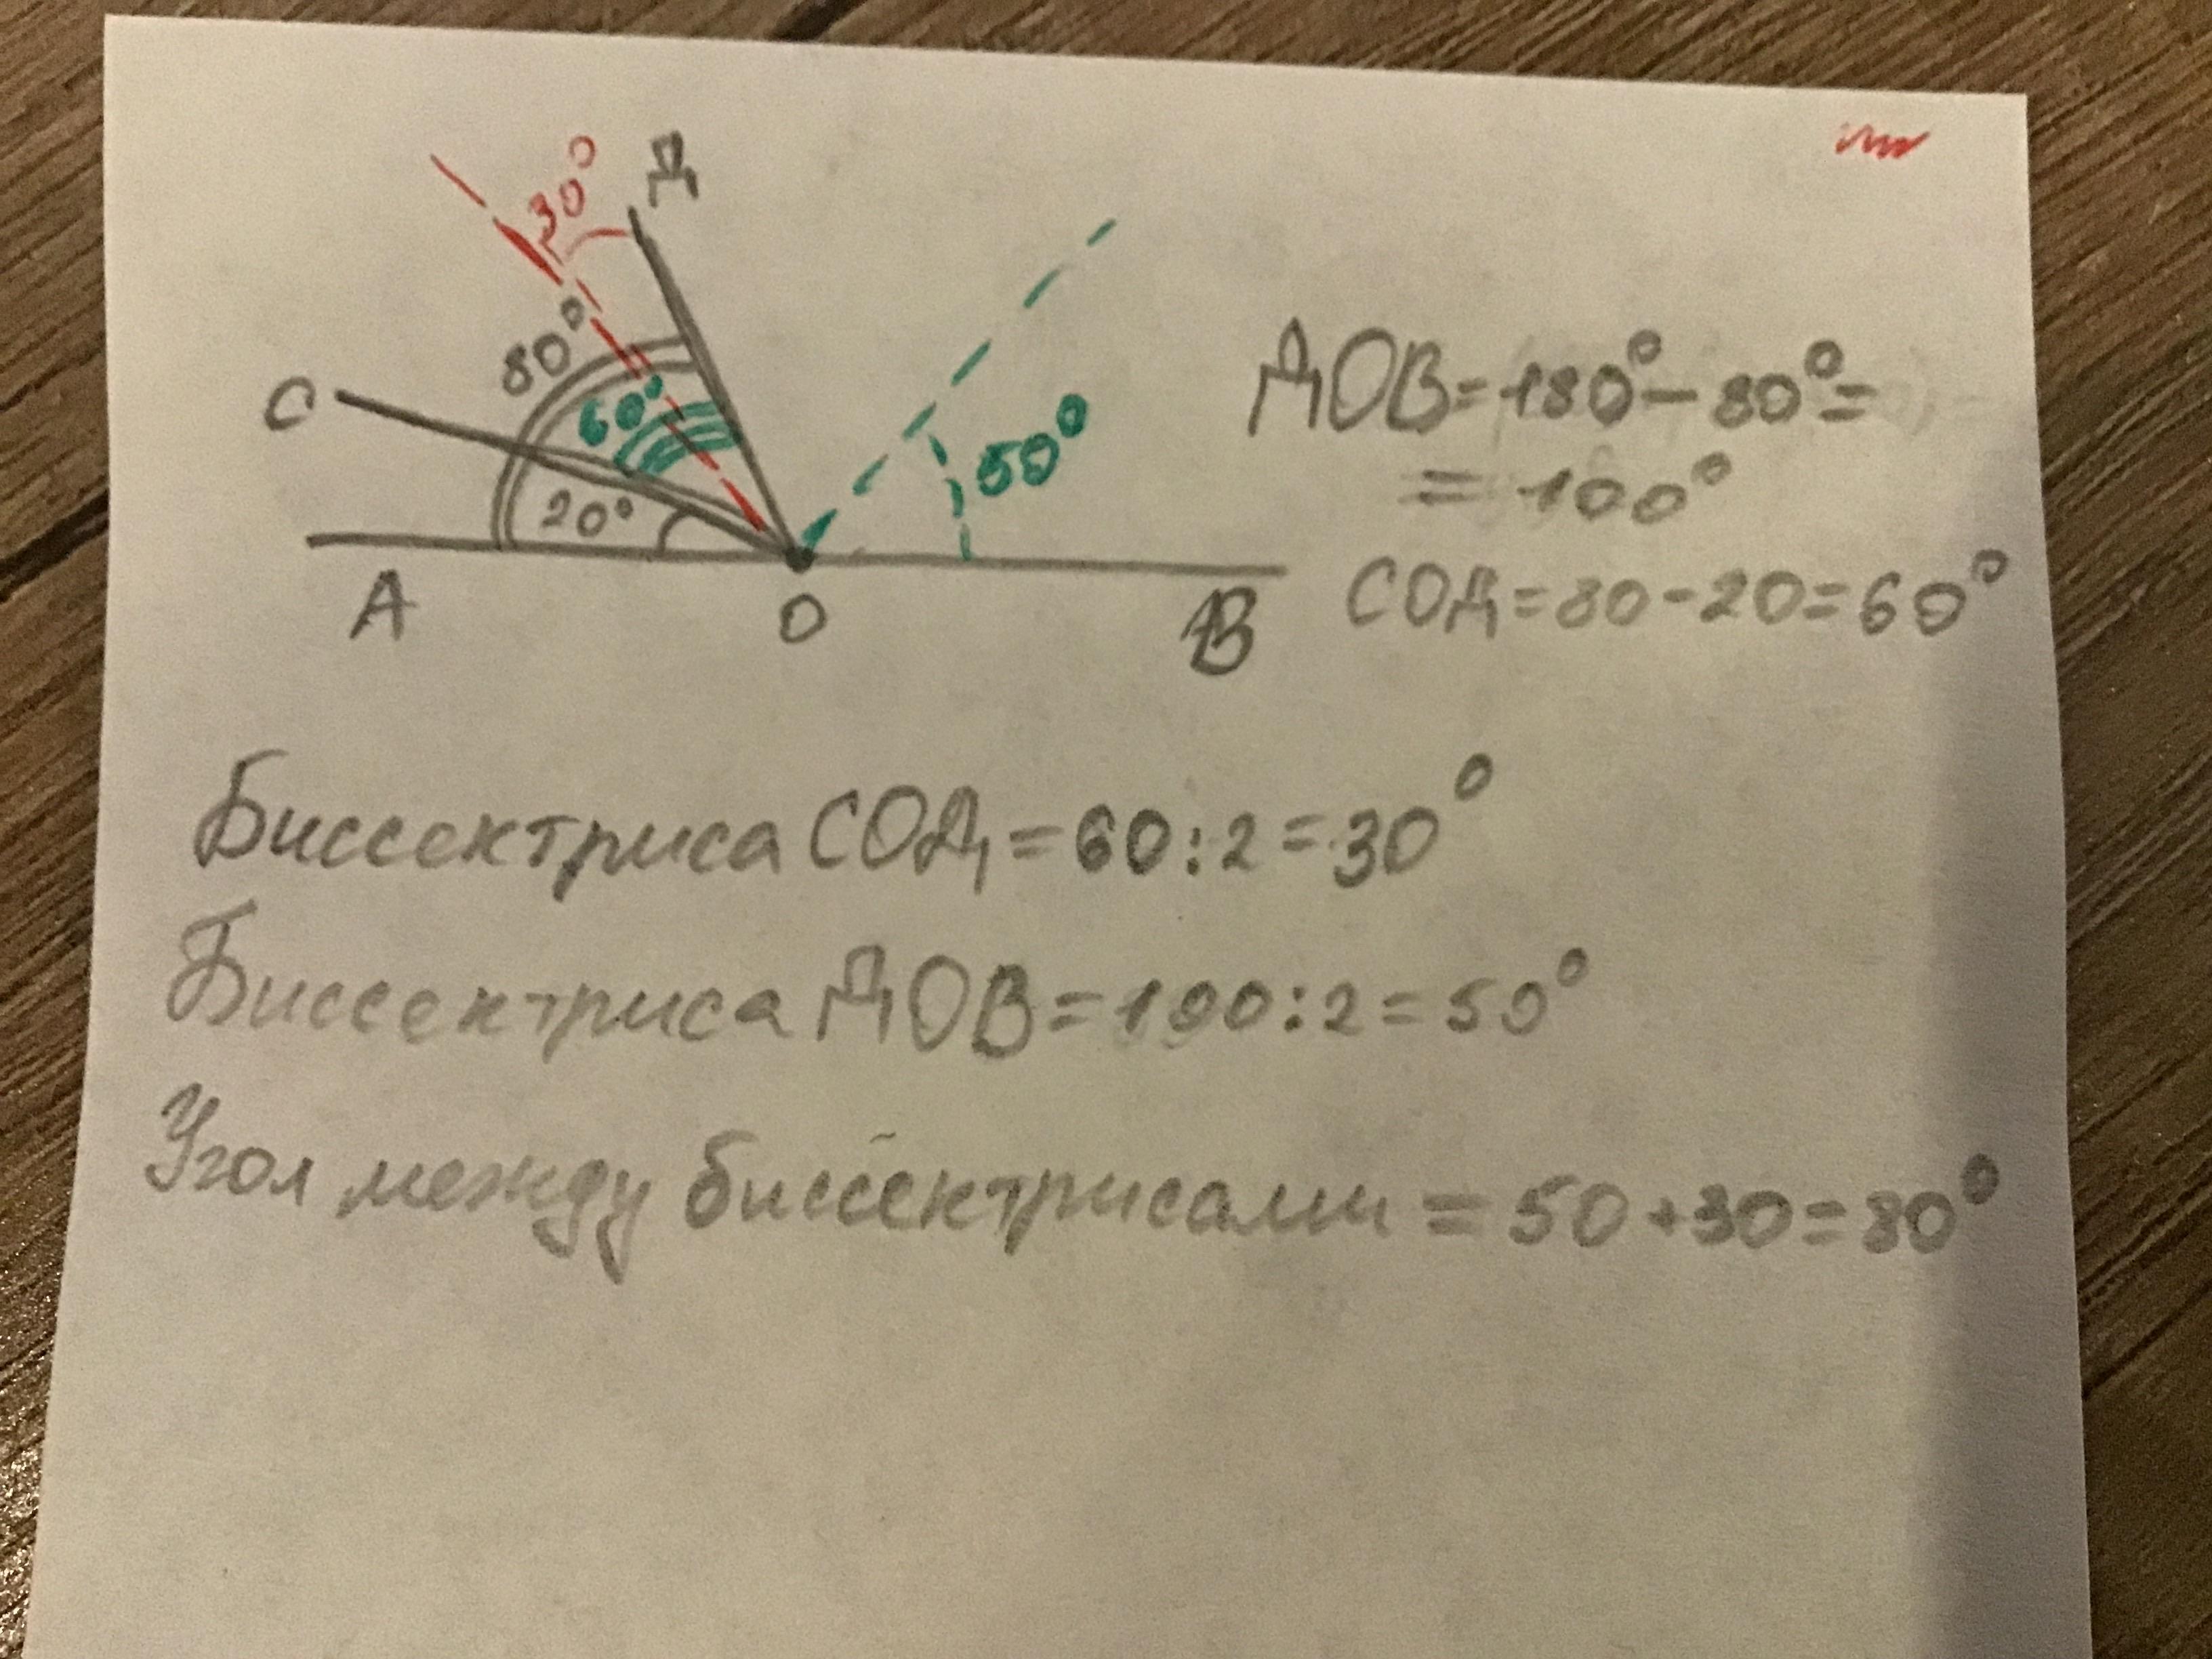 30°
Д
80°
С
60°
50°
20°
А
О
В
ДОВ = 180° - 80° =
= 100°
СОД = 80 - 20 = 60°
Биссектриса СОД = 60 : 2 = 30°
Биссектриса ДОВ = 100 : 2 = 50°
Угол между биссектрисами = 50 + 30 = 80°